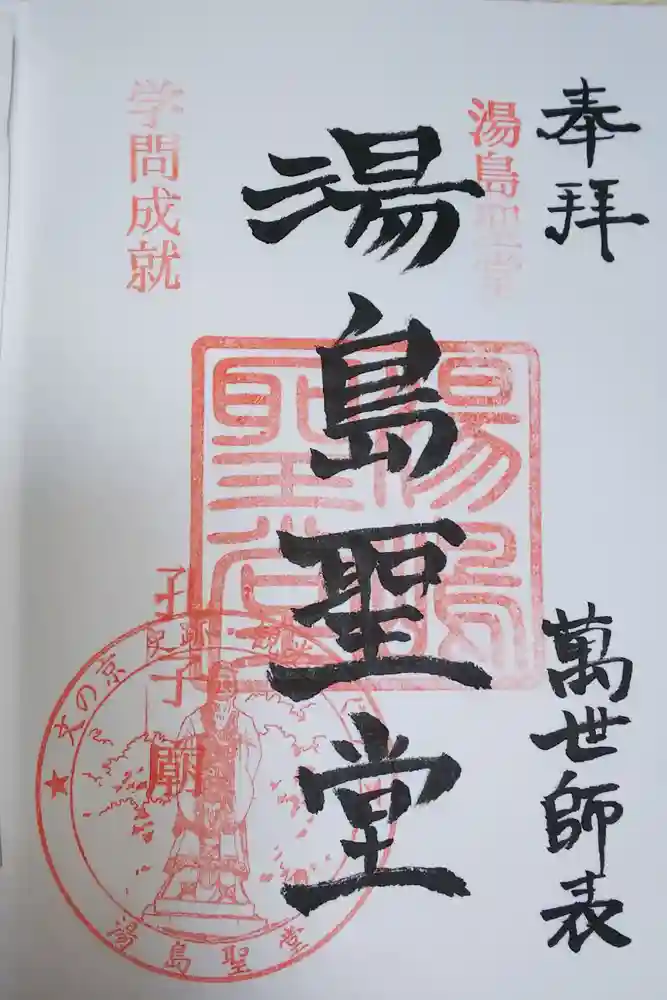 奉拝
萬世師表
湯島聖堂
湯島聖堂
湯島聖堂
学問成就
孔子廟
★文の京 史跡
湯島聖堂